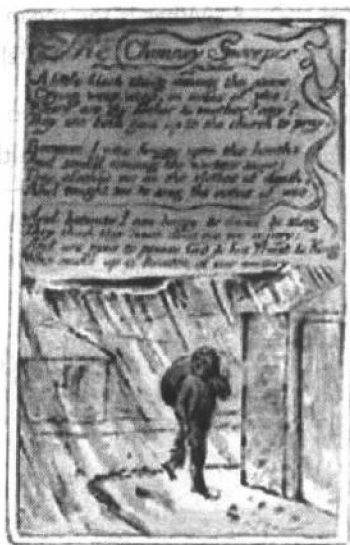 The Chimney Sweeper
A little black thing among the snow:
Crying weep, weep, in notes of woe!
Where are thy father & mother? say?
They are both gone up to the church to pray.
Because I was happy upon the heath,
And smil'd among the winters snow:
They clothed me in the clothes of death,
And taught me to sing the notes of woe.
And because I am happy, & dance & sing,
They think they have done me no injury:
And are gone to praise God & his Priest & King
Who make up a heaven of our misery.